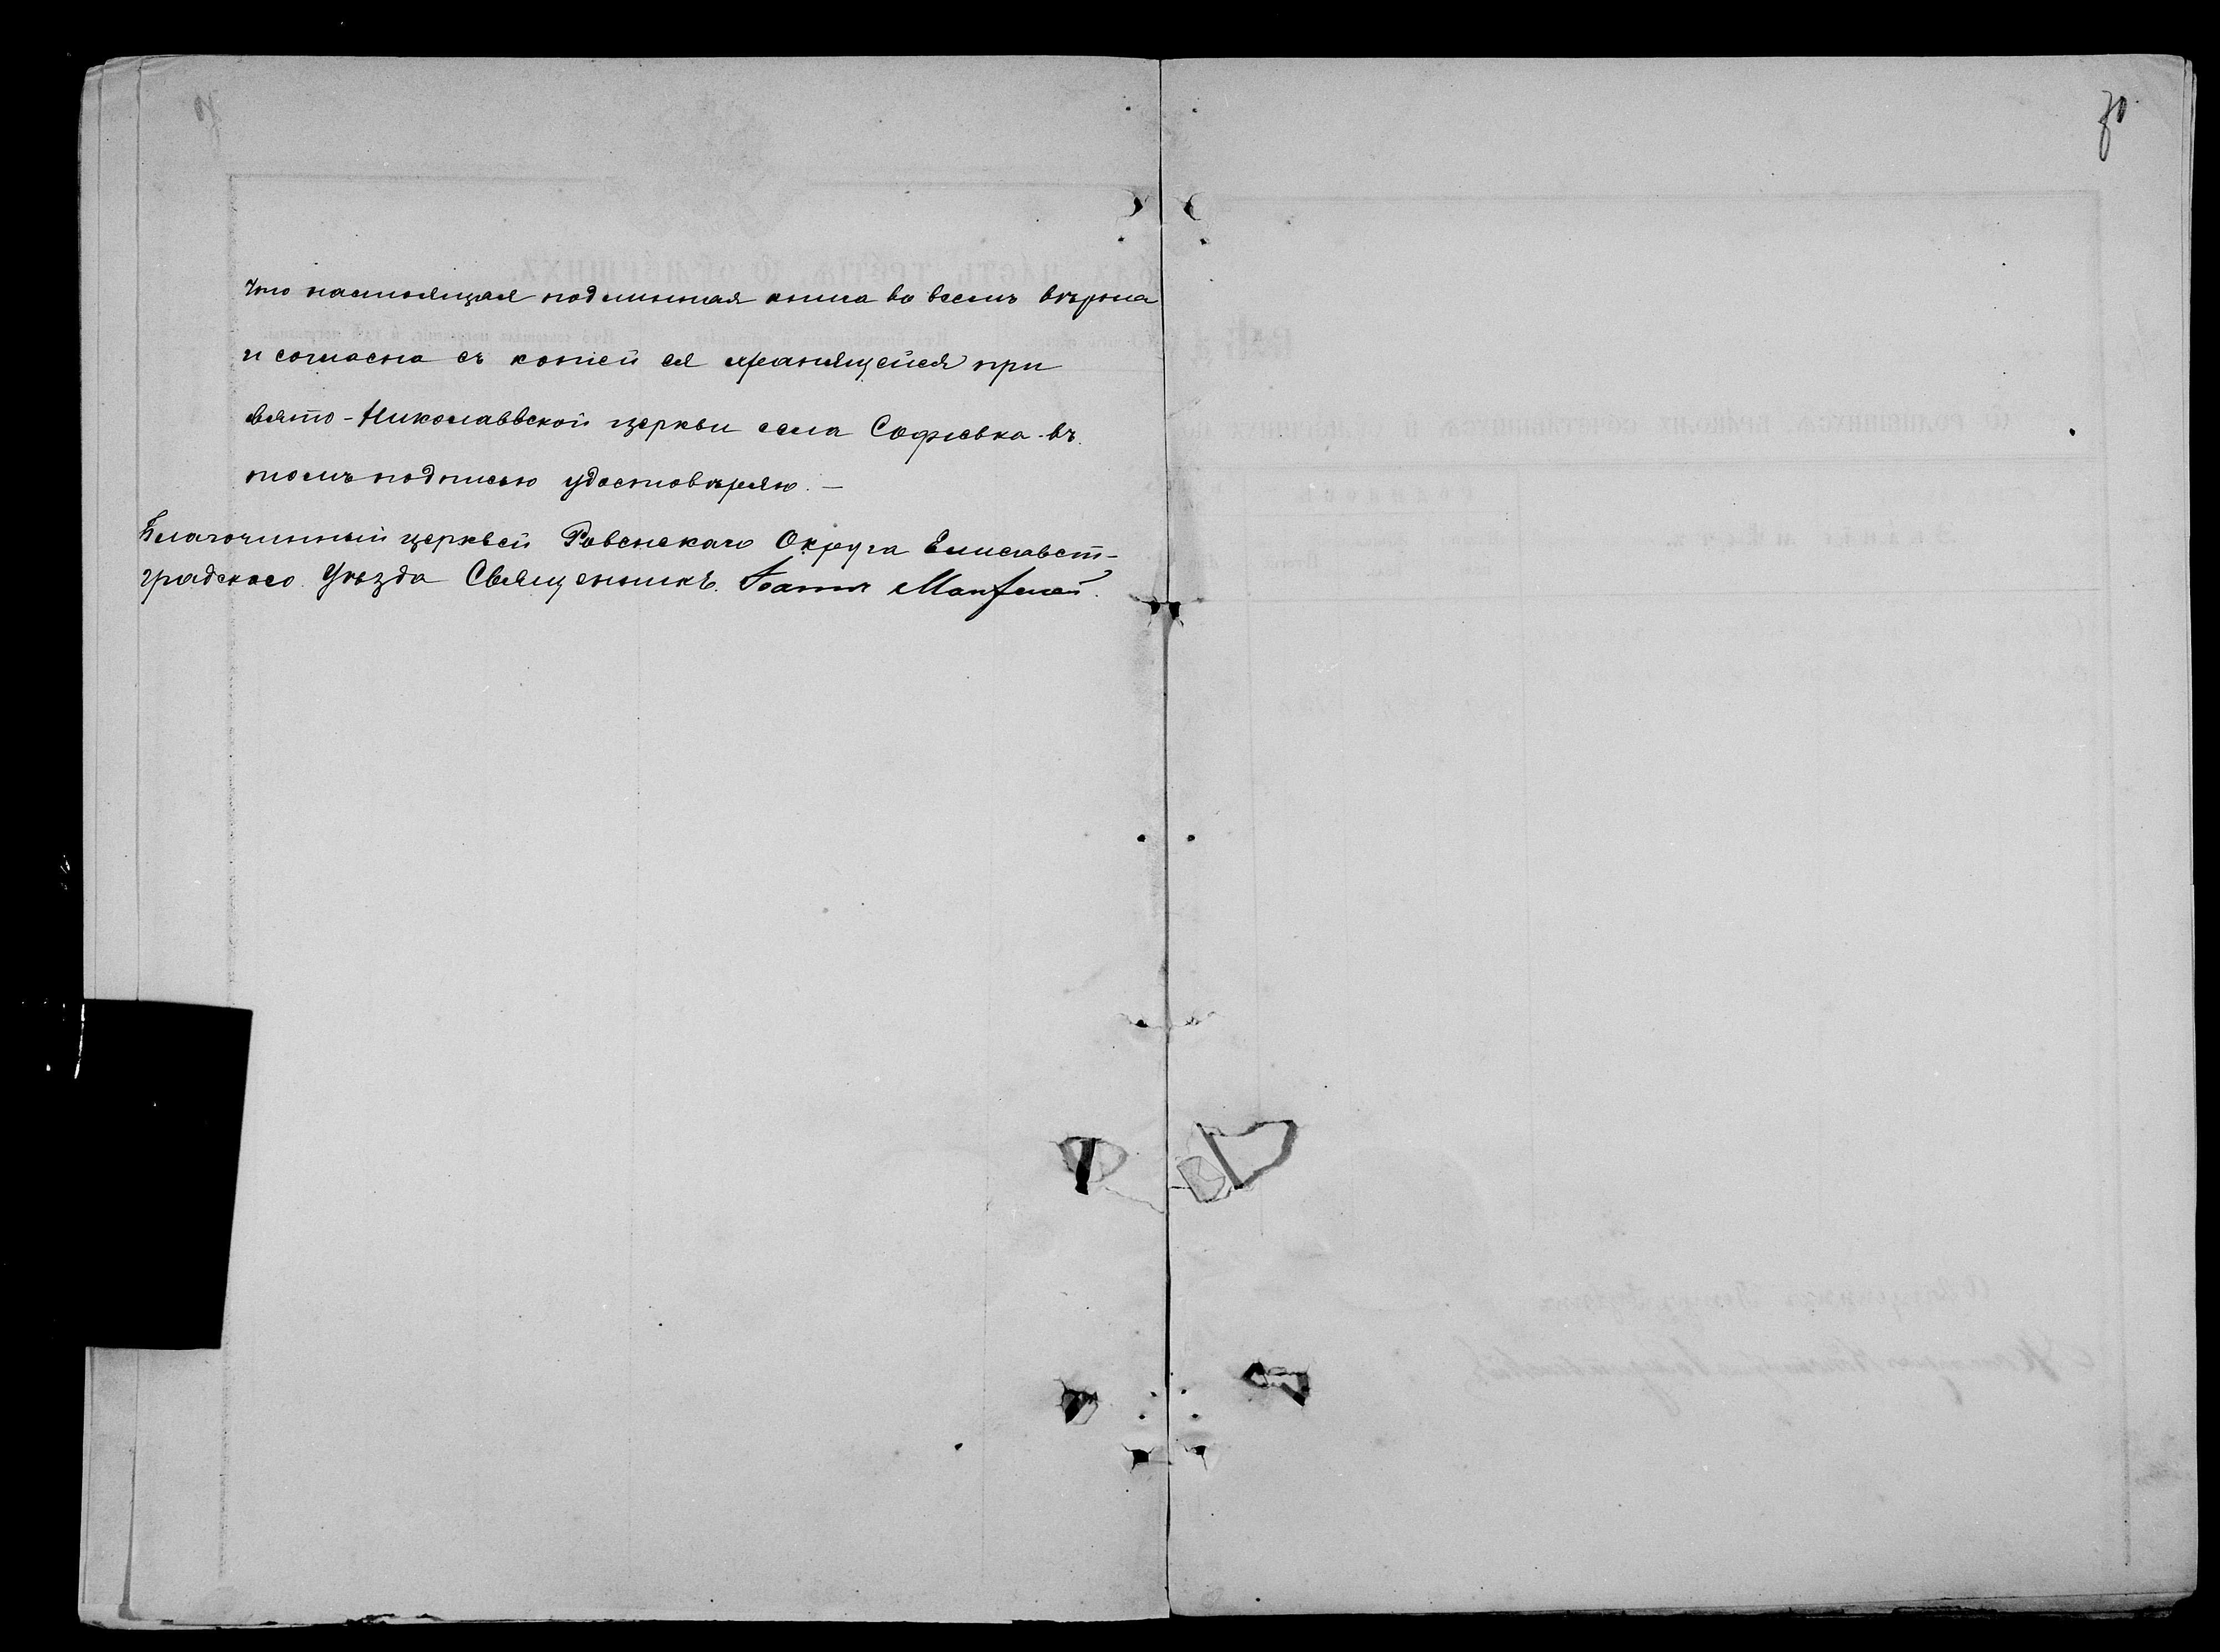 70
Что настоящая подлинная книга во всемъ вѣрна
и согласна съ копіей ея хранящейся при
Свято-Николаевской церкви села Софіевка въ
томъ подписью удостовѣряю. —
Благочинный церквей Ровенскаго Округа Елисавет-
градского Уѣзда Священникъ Іоаннъ